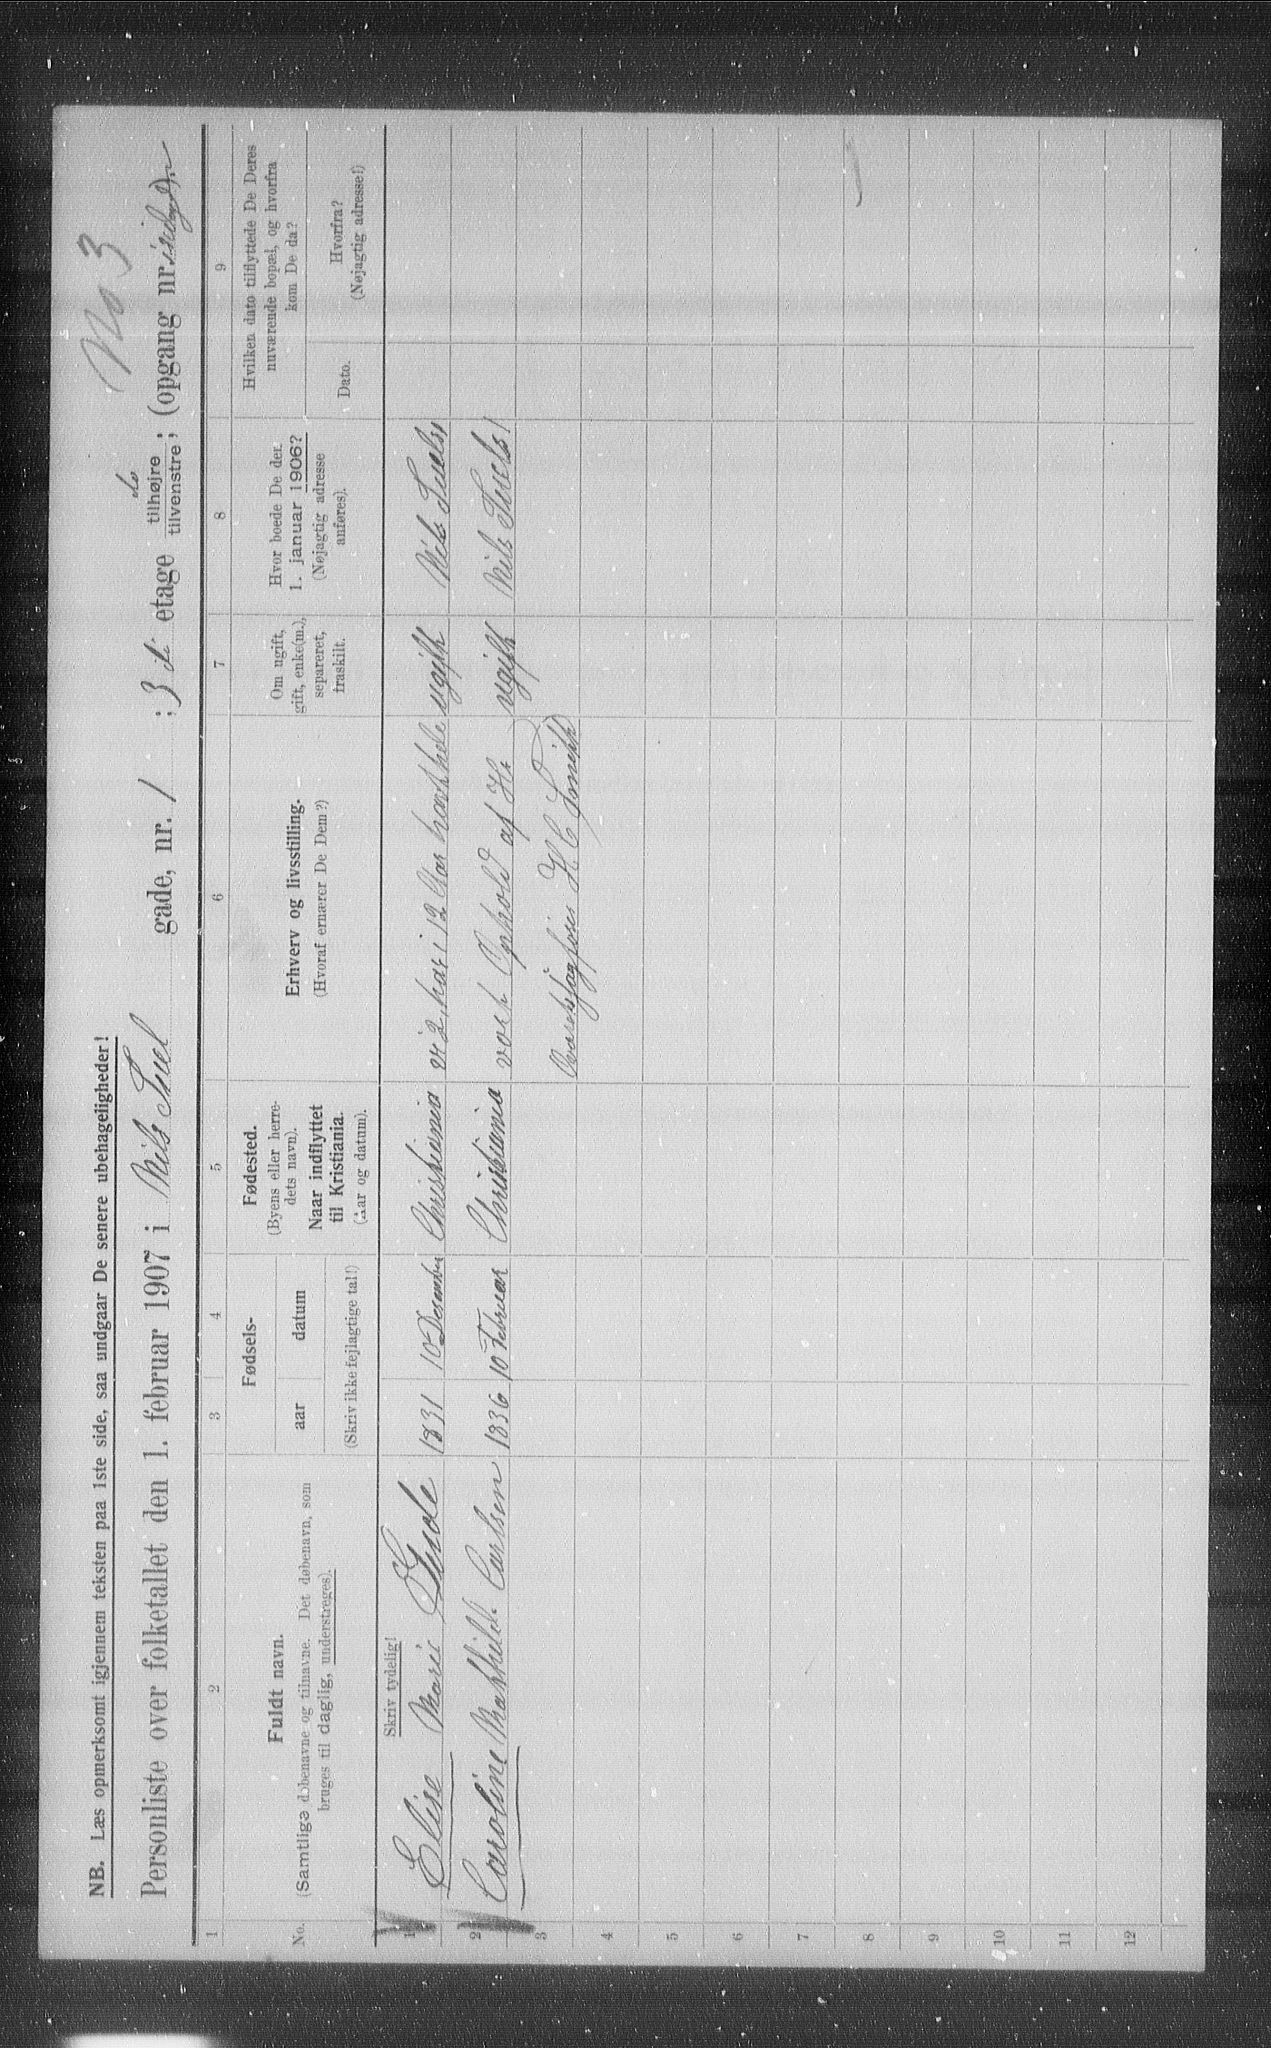 No 3
NB. Læs opmerksomt igjennem teksten paa 1ste side, saa undgaar De senere ubehageligheder!
Personliste over folketallet den 1. februar 1907 i Nils Juel gade, nr. 1 ; 3 di etage tilhøjre tilvenstre; (opgang nr.
1 2 3 4 5 6 7 8 9
No.
Fuldt navn.
(Samtlige døbenavne og tilnavne. Det døbenavn, som
bruges til daglig, understreges).
Fødsels-
aar datum
(Skriv ikke fejlagtige tal!)
Fødested.
(Byens eller herre-
dets navn).
Naar indflyttet
til Kristiania.
(Aar og datum).
Erhverv og livsstilling.
(Hvoraf ernærer De Dem?)
Om ugift,
gift, enke(m.),
separeret,
fraskilt.
Hvor boede De den
1. januar 1906?
(Nøjagtig adresse
anføres).
Hvilken dato tilflyttede De Deres
nuværende bopæl, og hvorfra
kom De da?
Dato.
Hvorfra?
(Nøjagtig adresse!)
Skriv tydelig!
1 Elise Marie Gude 1831 10 Desember Christiania vi 2, har i 12 Aar havt hele ugift Nils Juels
2 Caroline Mathilde Carlsen 1836 10 Februar Christiania vort Ophold af Hr ugift Nils Juels
3 H C
4
5
6
7
8
9
10
11
12